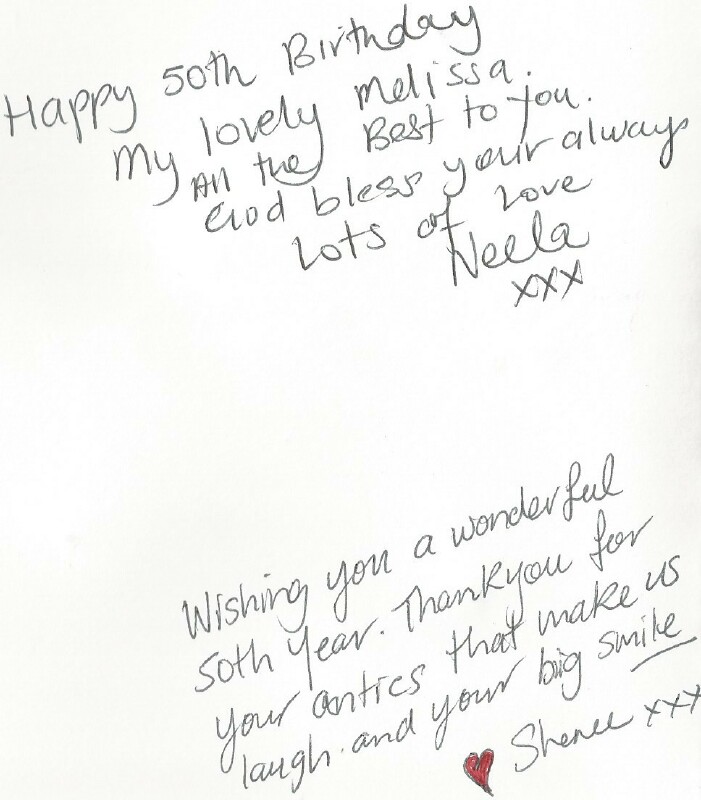 Happy 50th Birthday
My lovely Melissa.
All the Best to you.
God bless your always
Lots of Love
Neela
xxx
Wishing you a wonderful
50th Year. Thankyou for
your antics that make us
laugh. and your big smile
Shenee xxx